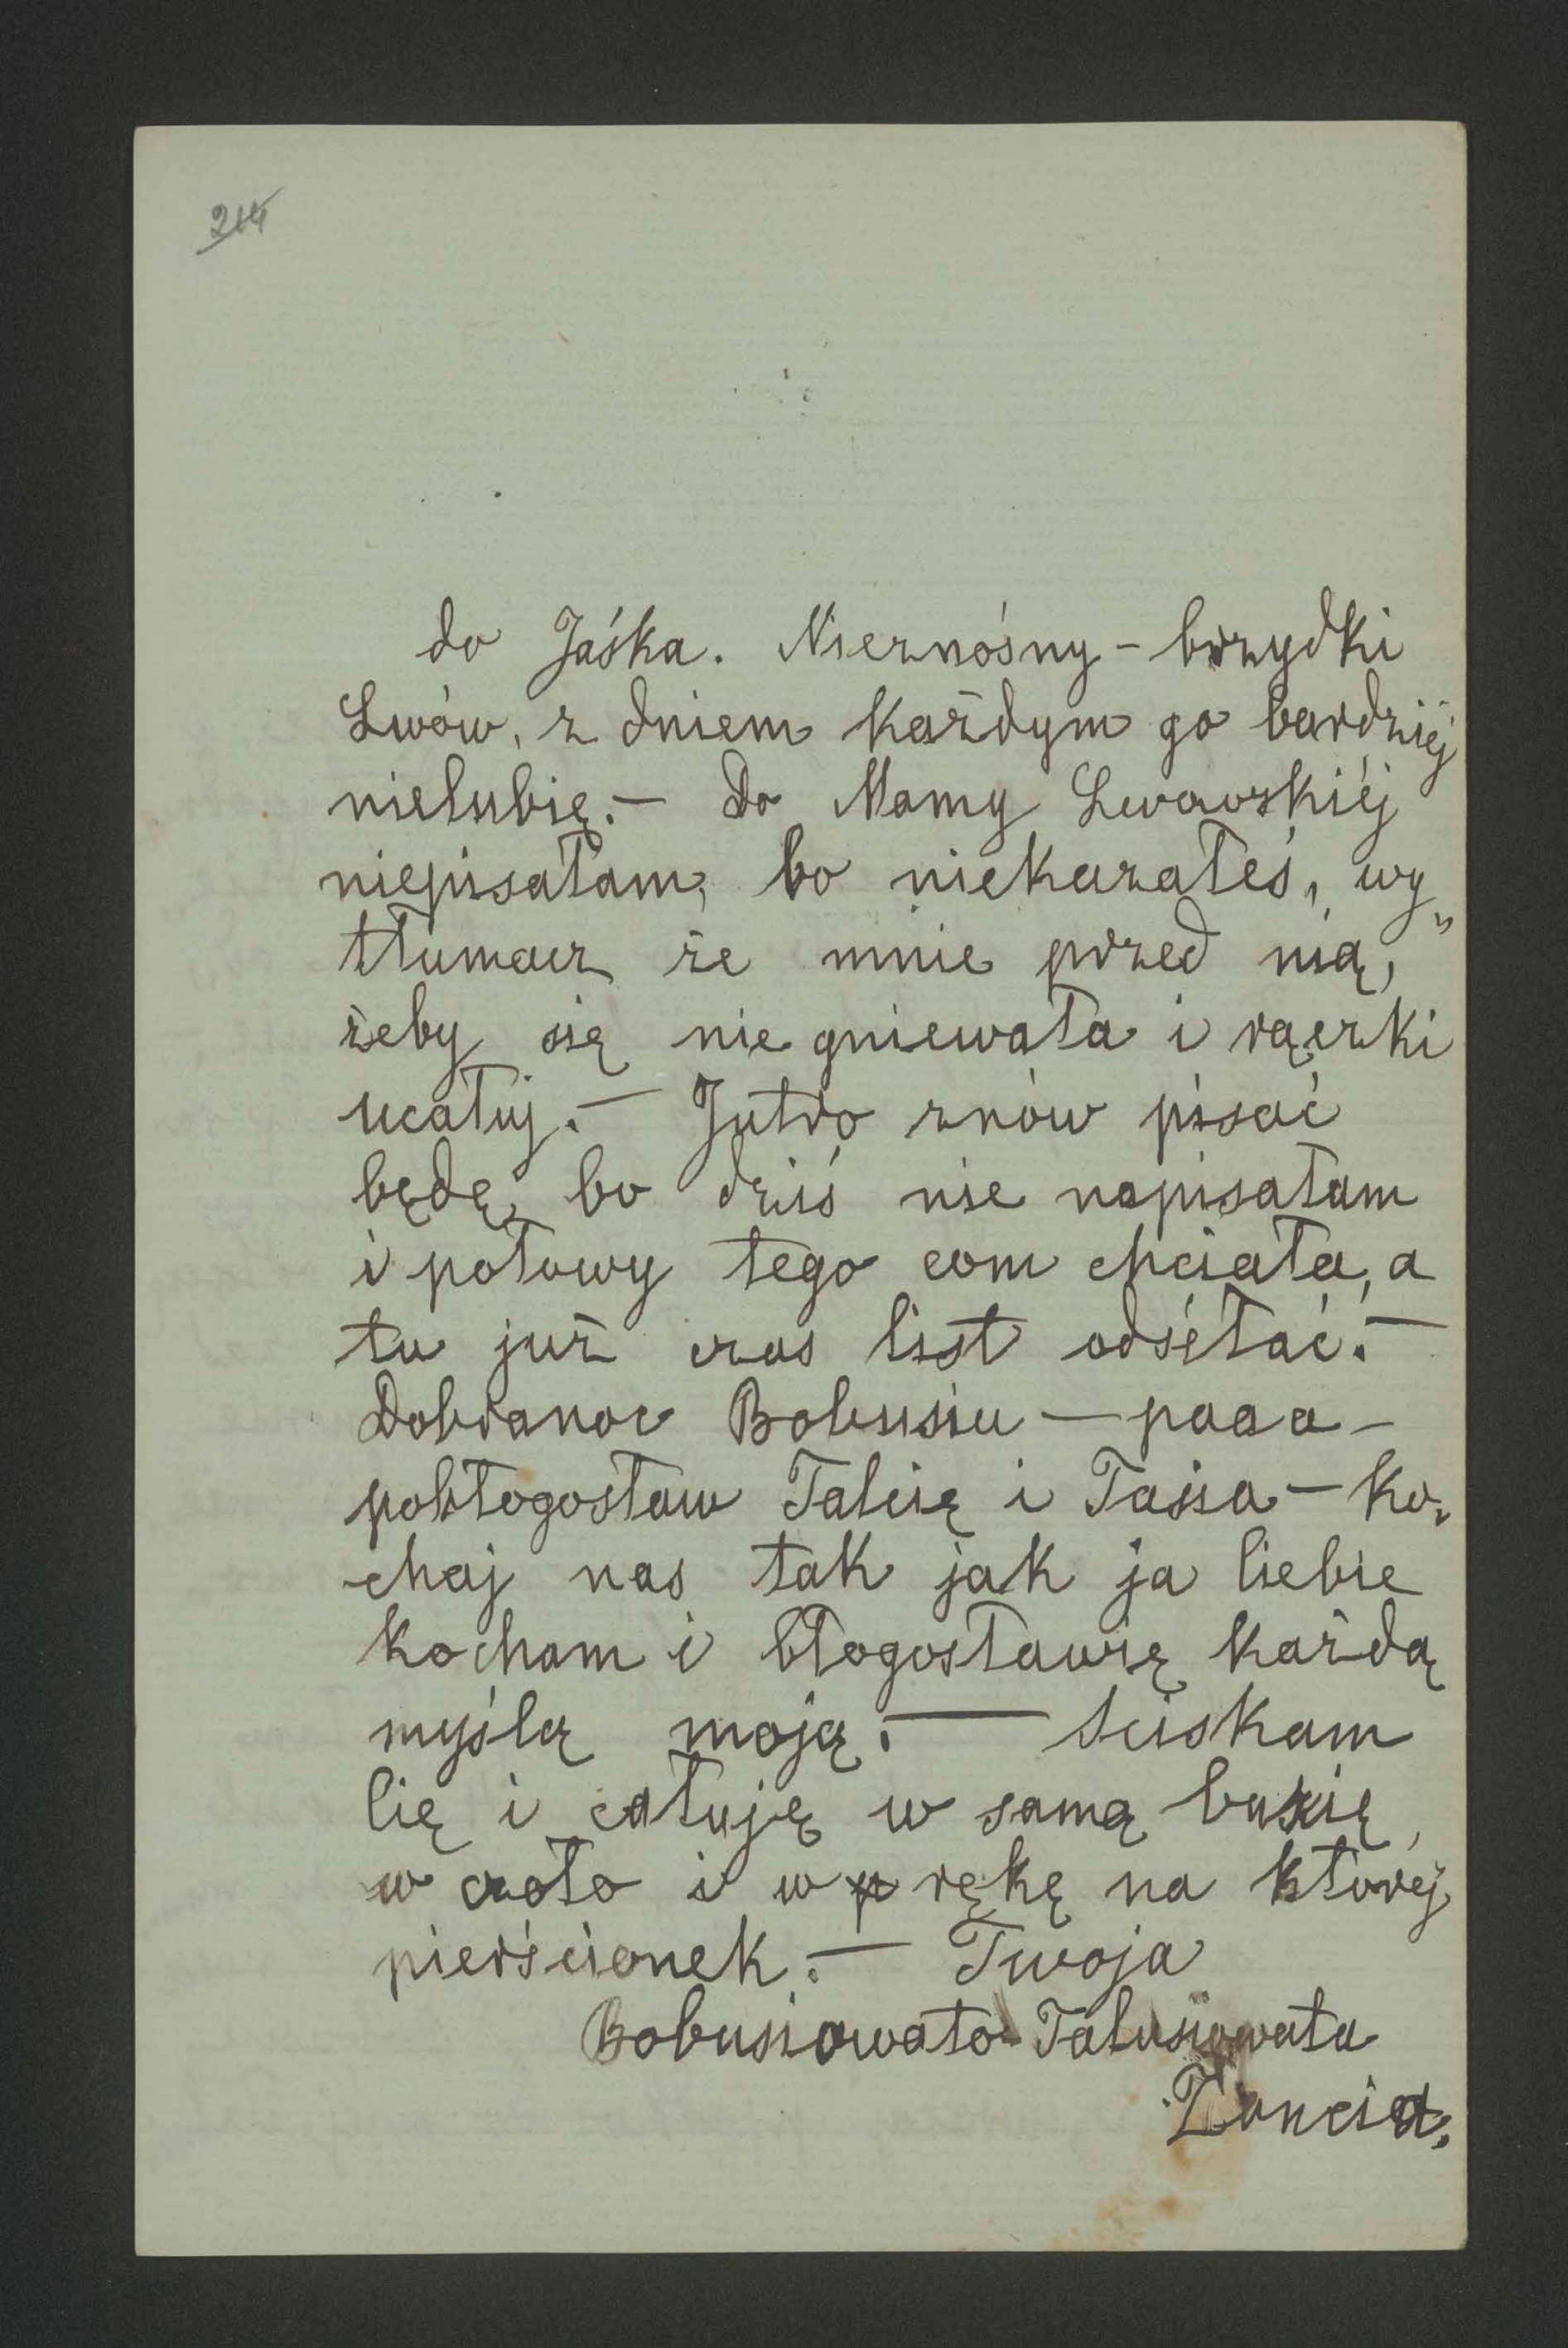 214
do Jaśka. Nieznośny - brzydki
Lwów, z dniem każdym go bardziéj
nielubię. — Do Mamy Lwowskiéj
niepisałam, bo niekazałeś, wy„
tłumacz że mnie przed nią,
żeby się nie gniewała i rączki
ucałuj. — Jutro znów pisać
będę, bo dziś nie napisałam
i połowy tego com chciała, a
tu już czas list odsełać. —
Dobranoc Bobusiu — paaa —
pobłogosław Talcię i Tasia — ko„
chaj nas tak jak ja Ciebie
kocham i błogosławię każdą
myślą moją. — Sciskam
Cię i całuję w samą buzię,
w czoło i w rękę na któréj
pierścionek. — Twoja
Bobusiowato-Talusiowata
Żancia.